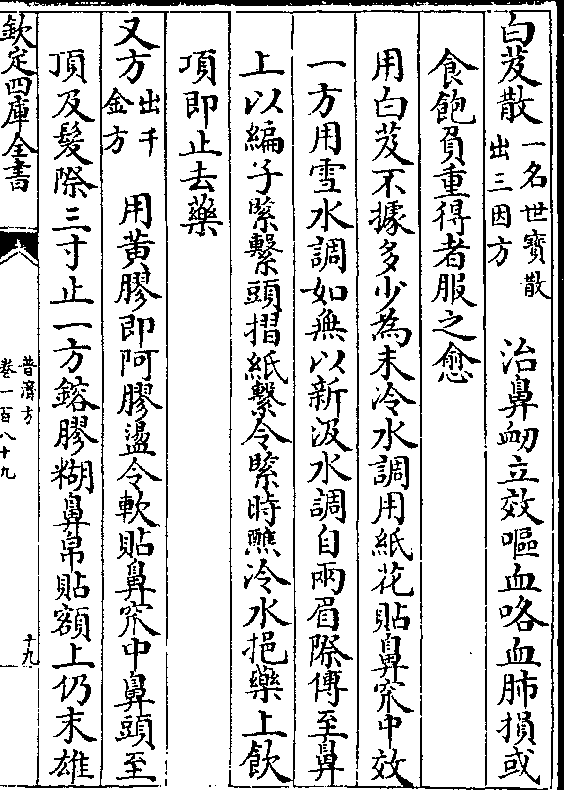 白芨散一名世寶散出三因方　治鼻衂立效嘔血咯血肺損或
食飽負重得者服之愈
用白芨不據多少為末冷水調用紙花貼鼻宂中效
一方用雪水調如無以新汲水調自兩眉際傅至鼻
上以編子緊繫頭摺紙繫令緊時蘸冷水挹藥上飲
項即止去藥
又方出千金方　用黄膠即阿膠盪令軟貼鼻宂中鼻頭至
頂及髮際三寸止一方鎔膠糊鼻帛貼額上仍末雄
欽定四庫全書
普濟方
卷一百八十九
十九